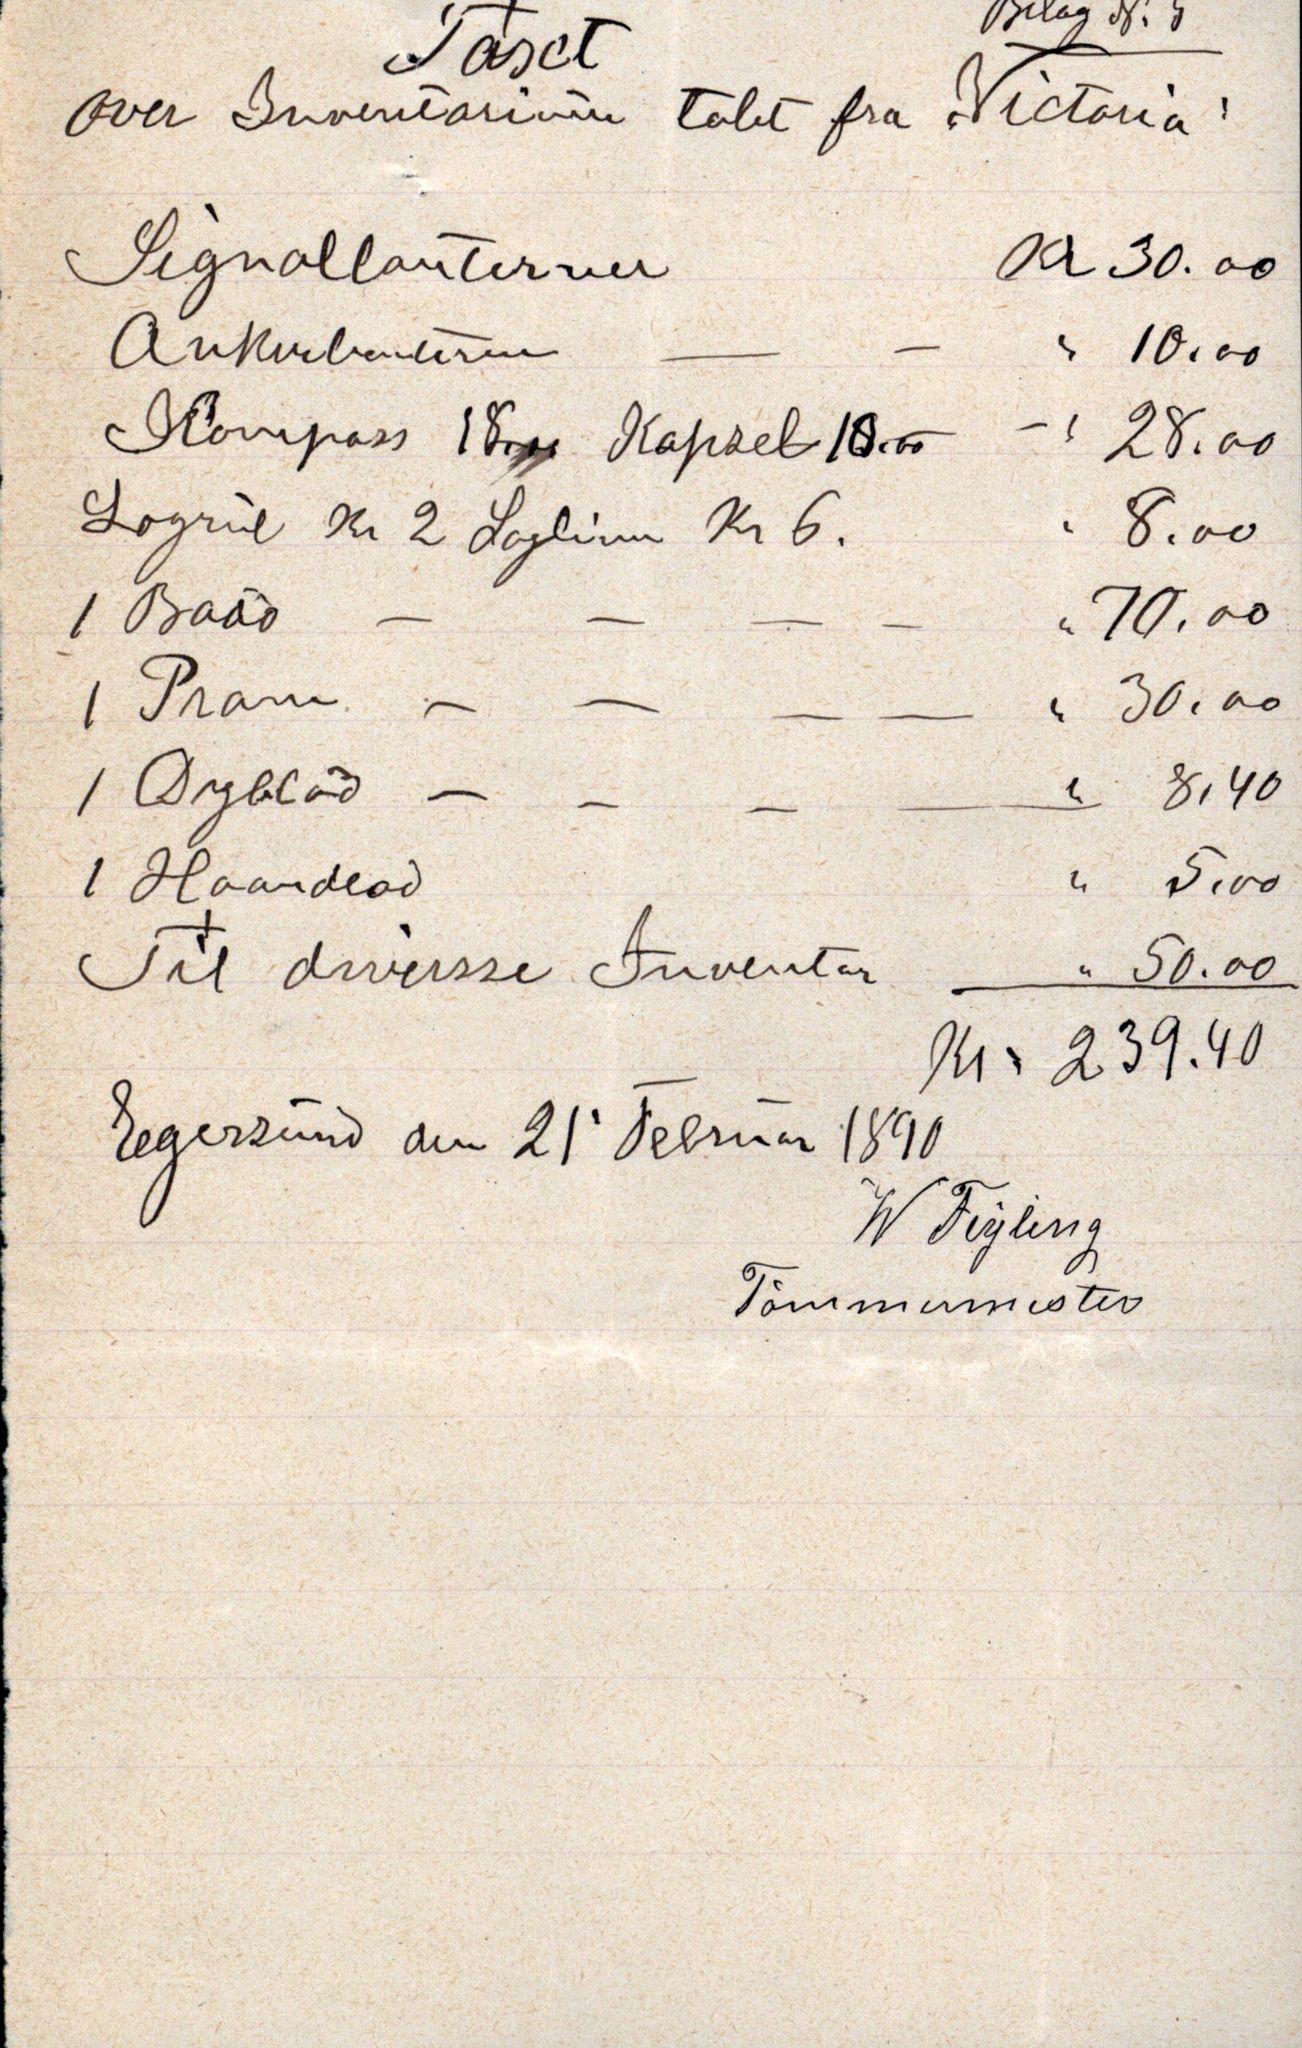 Bilag N. 5
Taxct
over Inventarium tabt fra "Victoria"
Signallanterner Kr 30.00
Ankerlanterne — — " 10.00
Kompass 18.00 Kapsel 10.00 — " 28.00
Logrul Kr 2 Loglinn Kr 6. " 8.00
1 Baad — — — — " 70.00
1 Pram — — — — " 30.00
1 Dyblod — — — — " 8.40
1 Haandlod " 5.00
Til diversse Inventar " 50.00
Kr. 239.40
Egersund den 21 Februar 1890
W Fÿling
Tömmermester